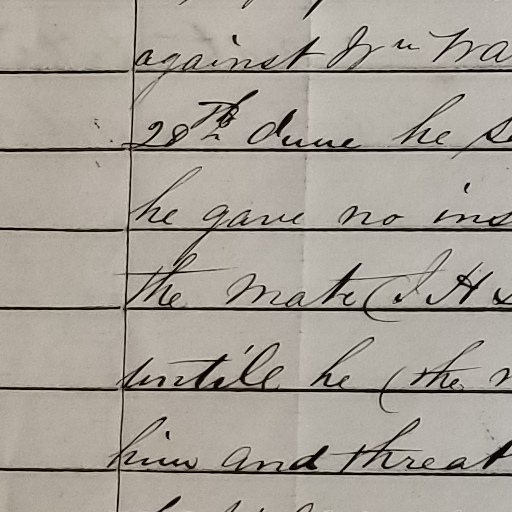 against Wm Wa
28th June he s
he gave no ins
the mate (J H S
untile he (the m
him and threat